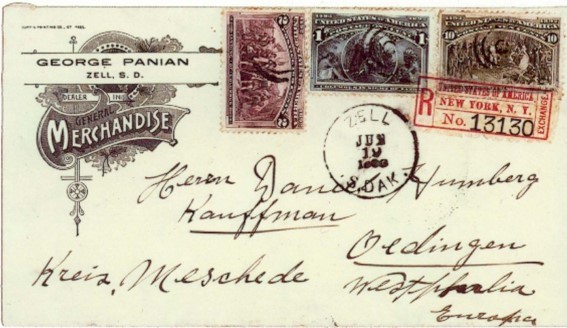 GEORGE PANIAN
ZELL, S. D.
DEALER IN
GENERAL
MERCHANDISE
1492 1892
UNITED STATES OF AMERICA
1
1492 1892
UNITED STATES OF AMERICA
10 10
2 2
R UNITED STATES OF AMERICA
NEW YORK, N. Y.
No. 13130
EXCHANGE
ZELL
JUN
19
S. DAK.
Herrn Humberg
Kauffman
Oedingen
Kreis, Meschede Westphalia
Europa